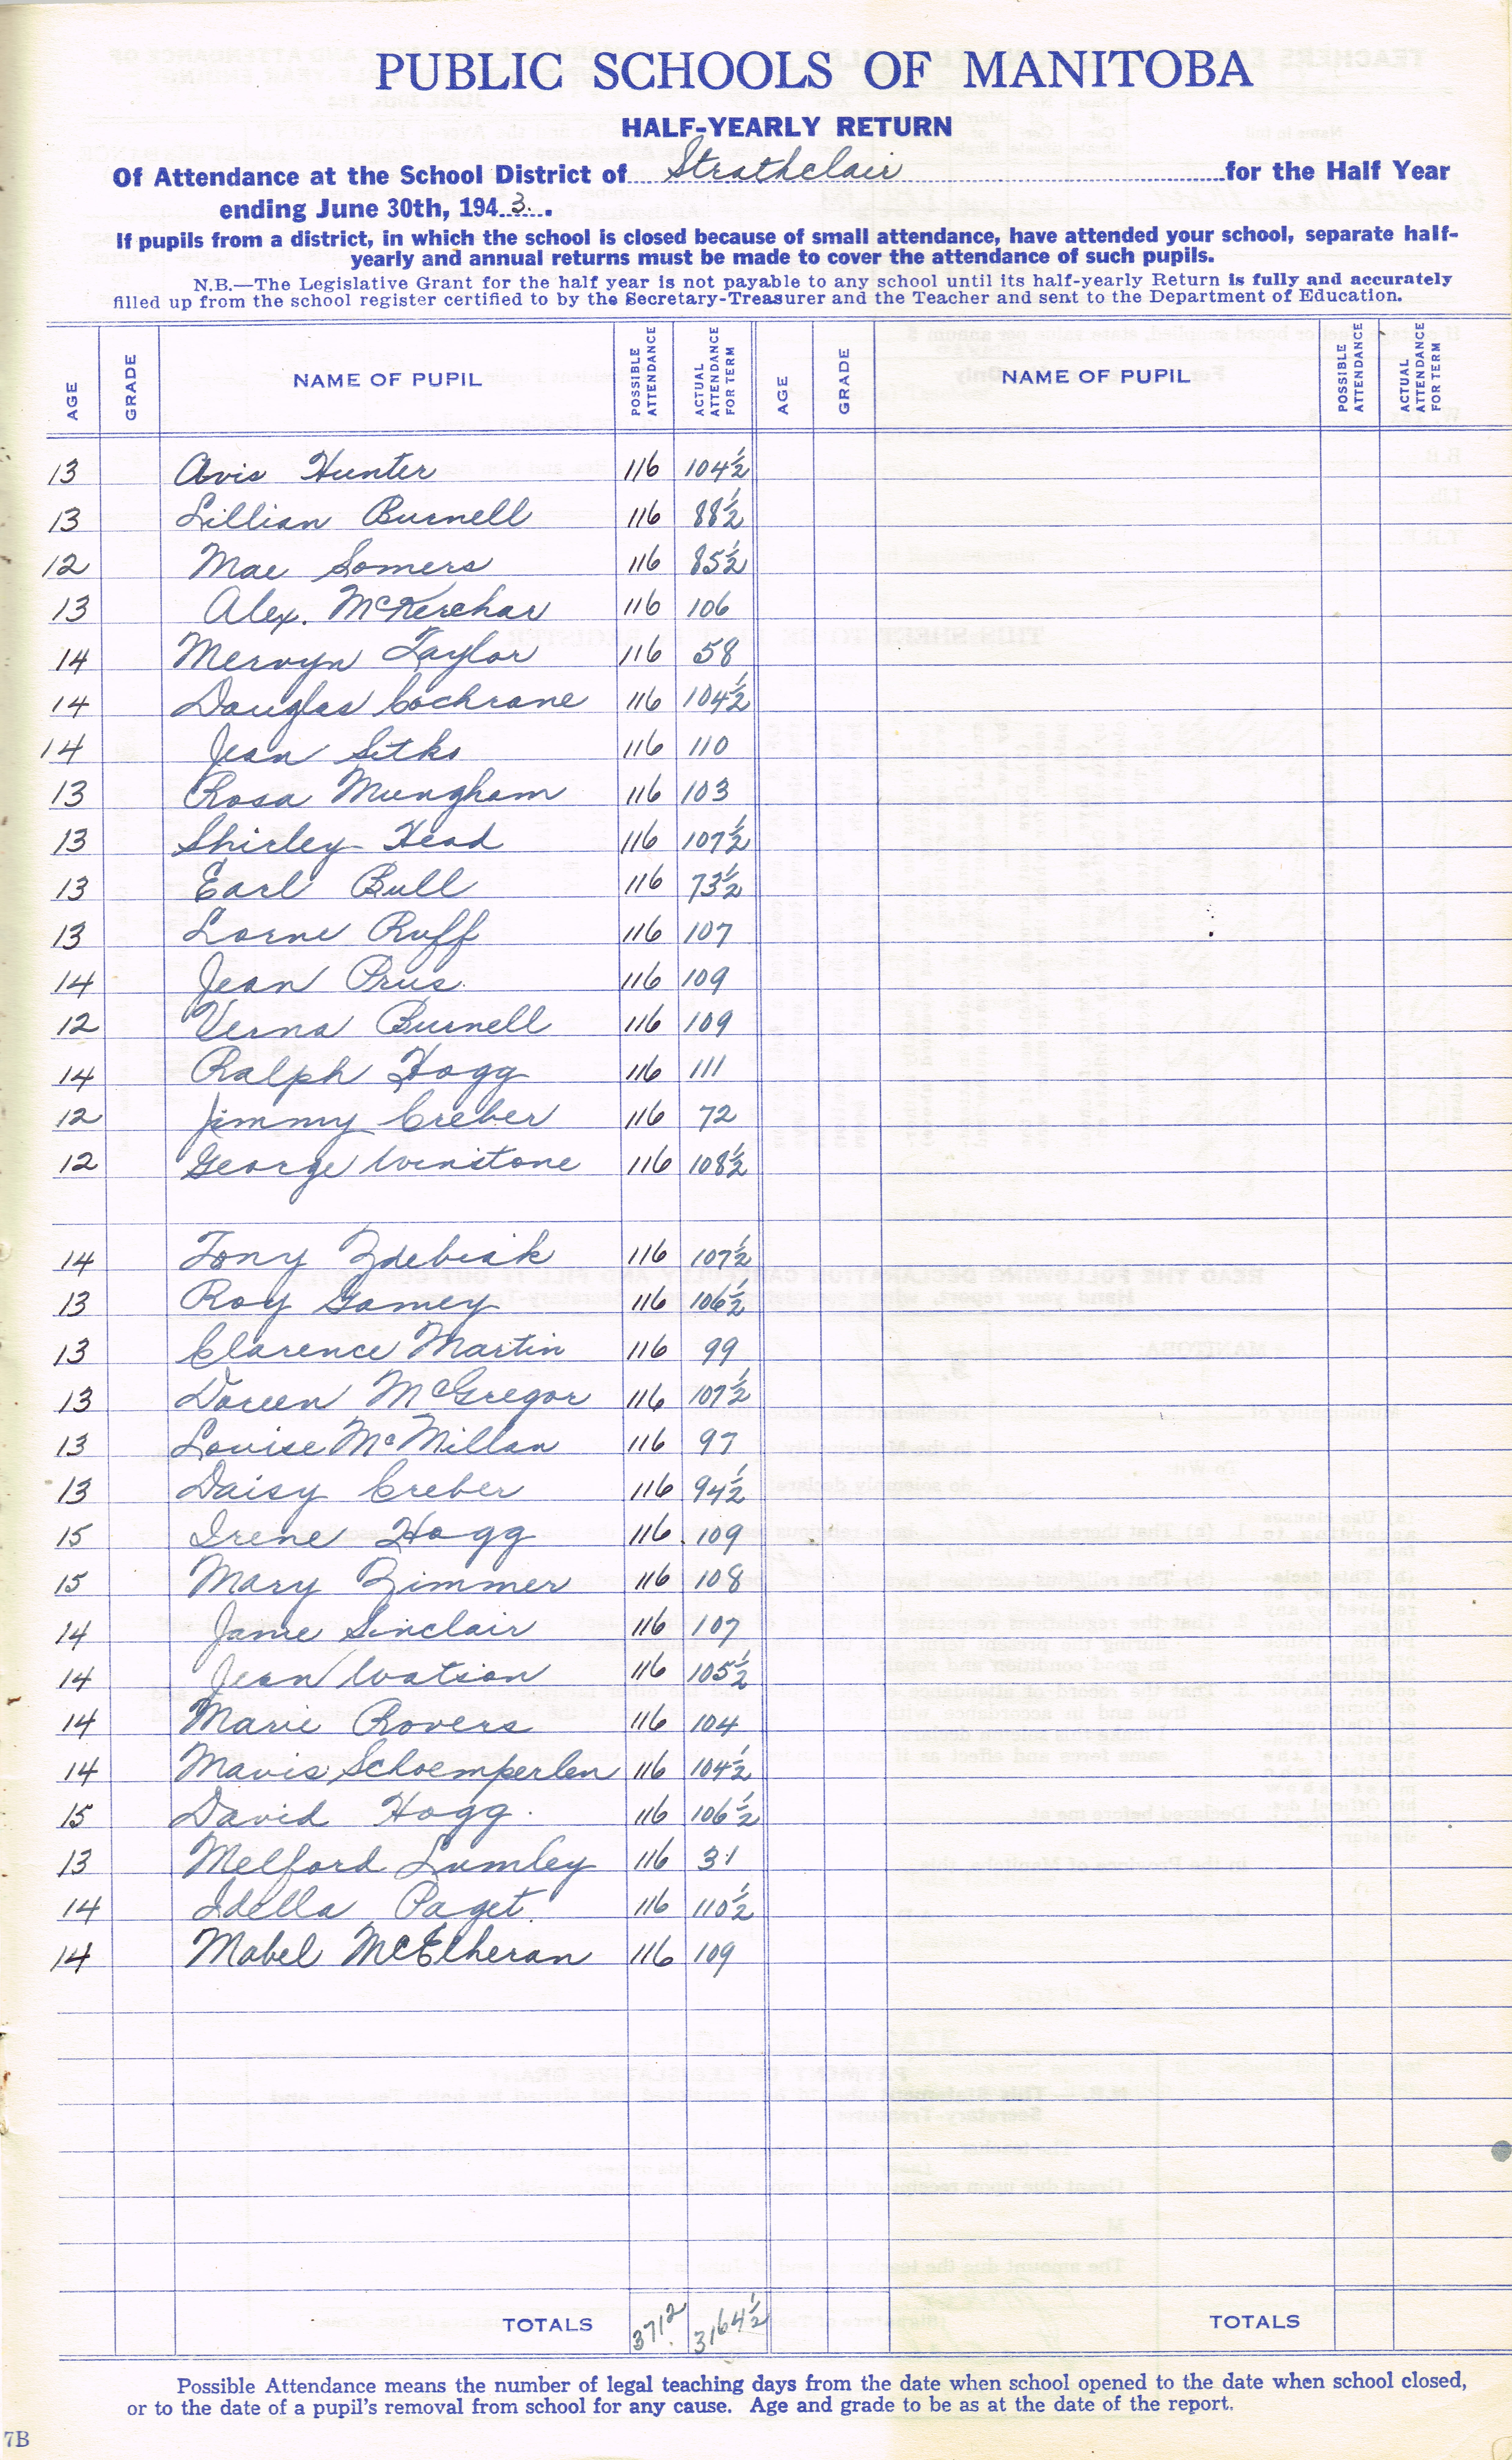 PUBLIC SCHOOLS OF MANITOBA
HALF-YEARLY RETURN
Of Attendance at the School District of Strathclair for the Half Year
ending June 30th, 1943.
If pupils from a district, in which the school is closed because of small attendance, have attended your school, separate half-
yearly and annual returns must be made to cover the attendance of such pupils.
N.B.—The Legislative Grant for the half year is not payable to any school until its half-yearly Return is fully and accurately
filled up from the school register certified to by the Secretary-Treasurer and the Teacher and sent to the Department of Education.
AGE GRADE NAME OF PUPIL POSSIBLE ATTENDANCE ACTUAL ATTENDANCE FOR TERM AGE GRADE NAME OF PUPIL POSSIBLE ATTENDANCE ACTUAL ATTENDANCE FOR TERM
13 Avis Hunter 116 104½
13 Lillian Burnell 116 88½
12 Mae Somers 116 85½
13 Alex. McKerchar 116 106
14 Mervyn Taylor 116 58
14 Douglas Cochrane 116 104½
14 Jean Sitko 116 110
13 Rosa Mungham 116 103
13 Shirley Head 116 107½
13 Earl Bull 116 73½
13 Lorne Ruff 116 107
14 Jean Prus 116 109
12 Verna Burnell 116 109
14 Ralph Hogg 116 111
12 Jimmy Creber 116 72
12 George Winstone 116 108½
14 Tony Zdebiak 116 107½
13 Roy Gamey 116 106½
13 Clarence Martin 116 99
13 Doreen McGregor 116 107½
13 Louise McMillan 116 97
13 Daisy Creber 116 94½
15 Irene Hogg 116 109
15 Mary Zimmer 116 108
14 Jamie Sinclair 116 107
14 Jean Watson 116 105½
14 Marie Rovers 116 104
14 Mavis Schoemperlen 116 104½
15 David Hogg 116 106½
13 Melford Lumley 116 31
14 Idella Paget 116 110½
14 Mabel McElheran 116 109
TOTALS 3712 3164½ TOTALS
Possible Attendance means the number of legal teaching days from the date when school opened to the date when school closed,
or to the date of a pupil's removal from school for any cause. Age and grade to be as at the date of the report.
7B